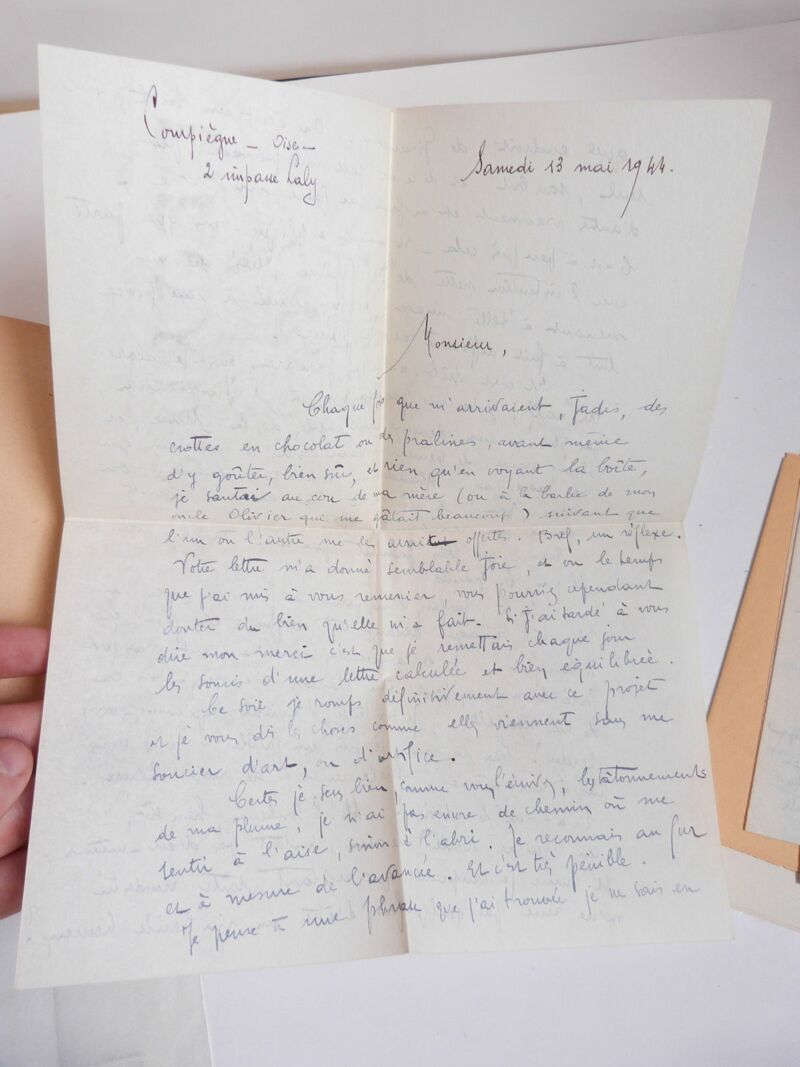 Compiègne - Oise -
2 impasse Laly
Samedi 13 mai 1944.
Monsieur,
Chaque fois que m'arrivaient, jadis, des
crottes en chocolat ou des pralines, avant même
d'y goûter, bien sûr, et rien qu'en voyant la boîte,
je sautai au cou de ma mère (ou à la barbe de mon
oncle Olivier qui me gâtait beaucoup) suivant que
l'un ou l'autre me les avait offertes. Bref, un réflexe.
Votre lettre m'a donné semblable joie, et vu le temps
que j'ai mis à vous remercier, vous pourriez cependant
douter du bien qu'elle m'a fait. Si j'ai tardé à vous
dire mon merci c'est que je remettais chaque jour
les soucis d'une lettre calculée et bien équilibrée.
Ce soir je romps définitivement avec ce projet
et je vous dis les choses comme elles viennent sans me
soucier d'art, ou d'artifice.
Certes je sens bien, comme vous l'écrivez, les tâtonnements
de ma plume, je n'ai pas encore de chemin où me
sentir à l'aise, sinon à l'abri. Je reconnais au fur
et à mesure de l'avancée. Et c'est très pénible.
Je pense à une phrase que j'ai trouvée je ne sais en